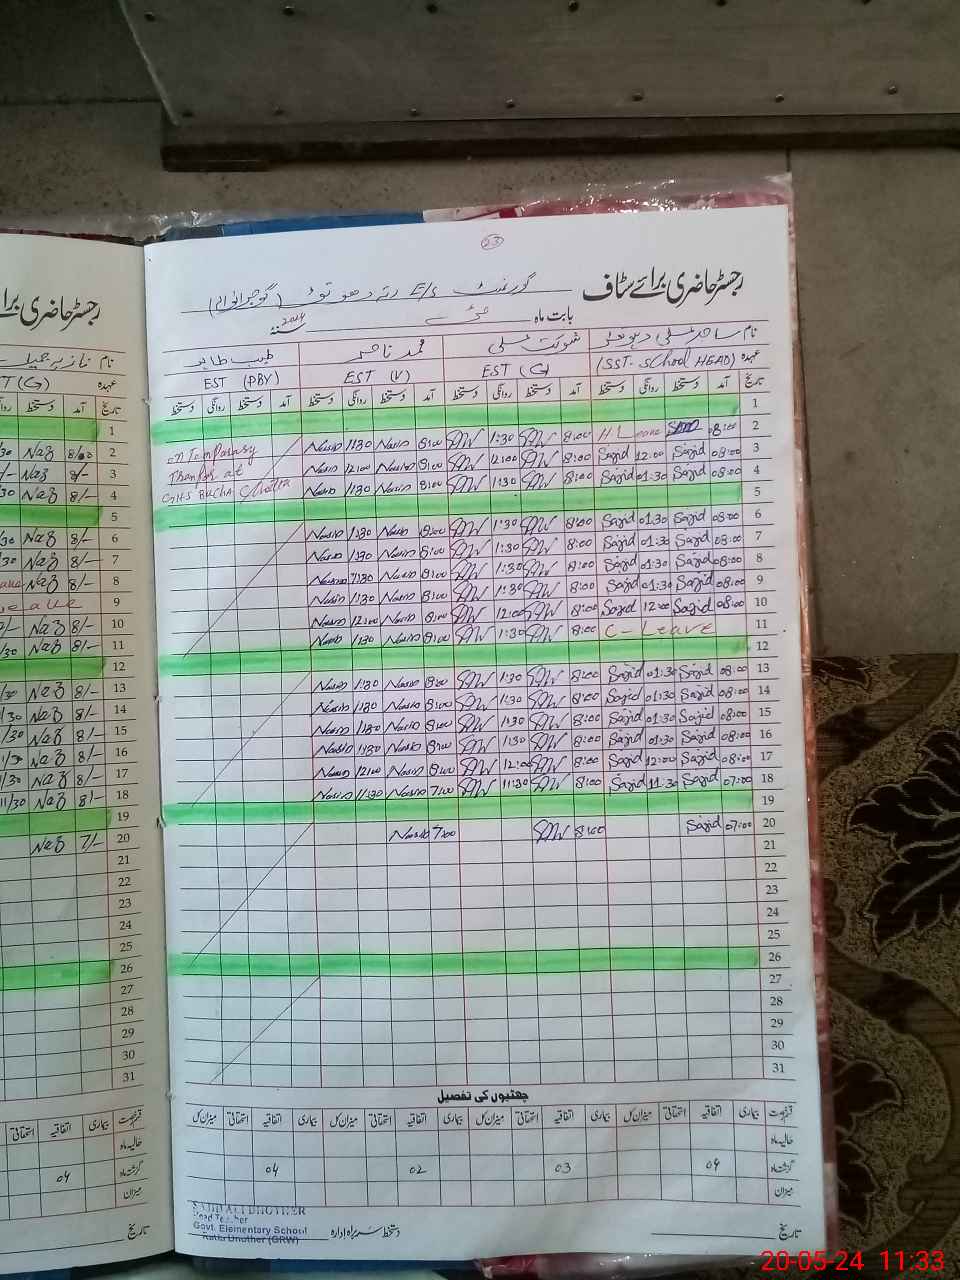 23
رجسٹر حاضری برائے سٹاف گورنمنٹ E/S رتہ دھوتڑ (گوجرانوالہ)
بابت ماہ مئی 2024 سنۂ
نام ساجد علی دہوتھڑ شوکت علی محمد ناصر طیب طاہر
عہدہ (SST- School HEAD) EST (G) EST (V) EST (PBY)
تاریخ آمد دستخط روانگی دستخط آمد دستخط روانگی دستخط آمد دستخط روانگی دستخط آمد دستخط روانگی دستخط
1
on Temparasy Nasir 1:30 Nasir 8:00 1:30 8:00 H. Leave 08:00 2
Nasir 12:00 Nasir 8:00 12:00 8:00 Sajid 12:00 Sajid 08:00 3
GHS BUCHA Chatta Nasir 1:30 Nasir 8:00 1:30 8:00 Sajid 01:30 Sajid 08:00 4
5
Nasir 1:30 Nasir 8:00 1:30 8:00 Sajid 01:30 Sajid 08:00 6
Nasir 1:30 Nasir 8:00 1:30 8:00 Sajid 01:30 Sajid 08:00 7
Nasir 1:30 Nasir 8:00 1:30 8:00 Sajid 01:30 Sajid 08:00 8
Nasir 1:30 Nasir 8:00 1:30 8:00 Sajid 01:30 Sajid 08:00 9
Nasir 12:00 Nasir 8:00 12:00 8:00 Sajid 12:00 Sajid 08:00 10
Nasir 1:30 Nasir 8:00 1:30 8:00 C- Leave 11
12
Nasir 1:30 Nasir 8:00 1:30 8:00 Sajid 01:30 Sajid 08:00 13
Nasir 1:30 Nasir 8:00 1:30 8:00 Sajid 01:30 Sajid 08:00 14
Nasir 1:30 Nasir 8:00 1:30 8:00 Sajid 01:30 Sajid 08:00 15
Nasir 1:30 Nasir 8:00 1:30 8:00 Sajid 01:30 Sajid 08:00 16
Nasir 12:00 Nasir 8:00 12:00 8:00 Sajid 12:00 Sajid 08:00 17
Nasir 11:30 Nasir 7:00 11:30 8:00 Sajid 11:30 Sajid 07:00 18
19
Nasir 7:00 8:00 Sajid 07:00 20
21
22
23
24
25
26
27
28
29
30
31
چھٹیوں کی تفصیل
قسم رخصت بیماری اتفاقیہ استحقاقی میزان کل بیماری اتفاقیہ استحقاقی میزان کل بیماری اتفاقیہ استحقاقی میزان کل بیماری اتفاقیہ استحقاقی میزان کل
حالیہ ماہ
گزشتہ ماہ 04 03 02 04
میزان
تاریخ دستخط سربراہ ادارہ
SAJID ALI DHOTHER
Head Teacher
Govt. Elementary School
Ratta Dhother (GRW)
رجسٹر حاضری برا
نام نازیہ جمیل
عہدہ T (G)
تاریخ آمد دستخط
1
Naz 8/00 2
Naz 8/- 3
Naz 8/- 4
5
Naz 8/- 6
Naz 8/- 7
Naz 8/- 8
9
Naz 8/- 10
Naz 8/- 11
12
Naz 8/- 13
Naz 8/- 14
Naz 8/- 15
Naz 8/- 16
Naz 8/- 17
Naz 8/- 18
19
Naz 7/- 20
21
22
23
24
25
26
27
28
29
30
31
بیماری اتفاقیہ استحقاقی
04
20-05-24 11:33